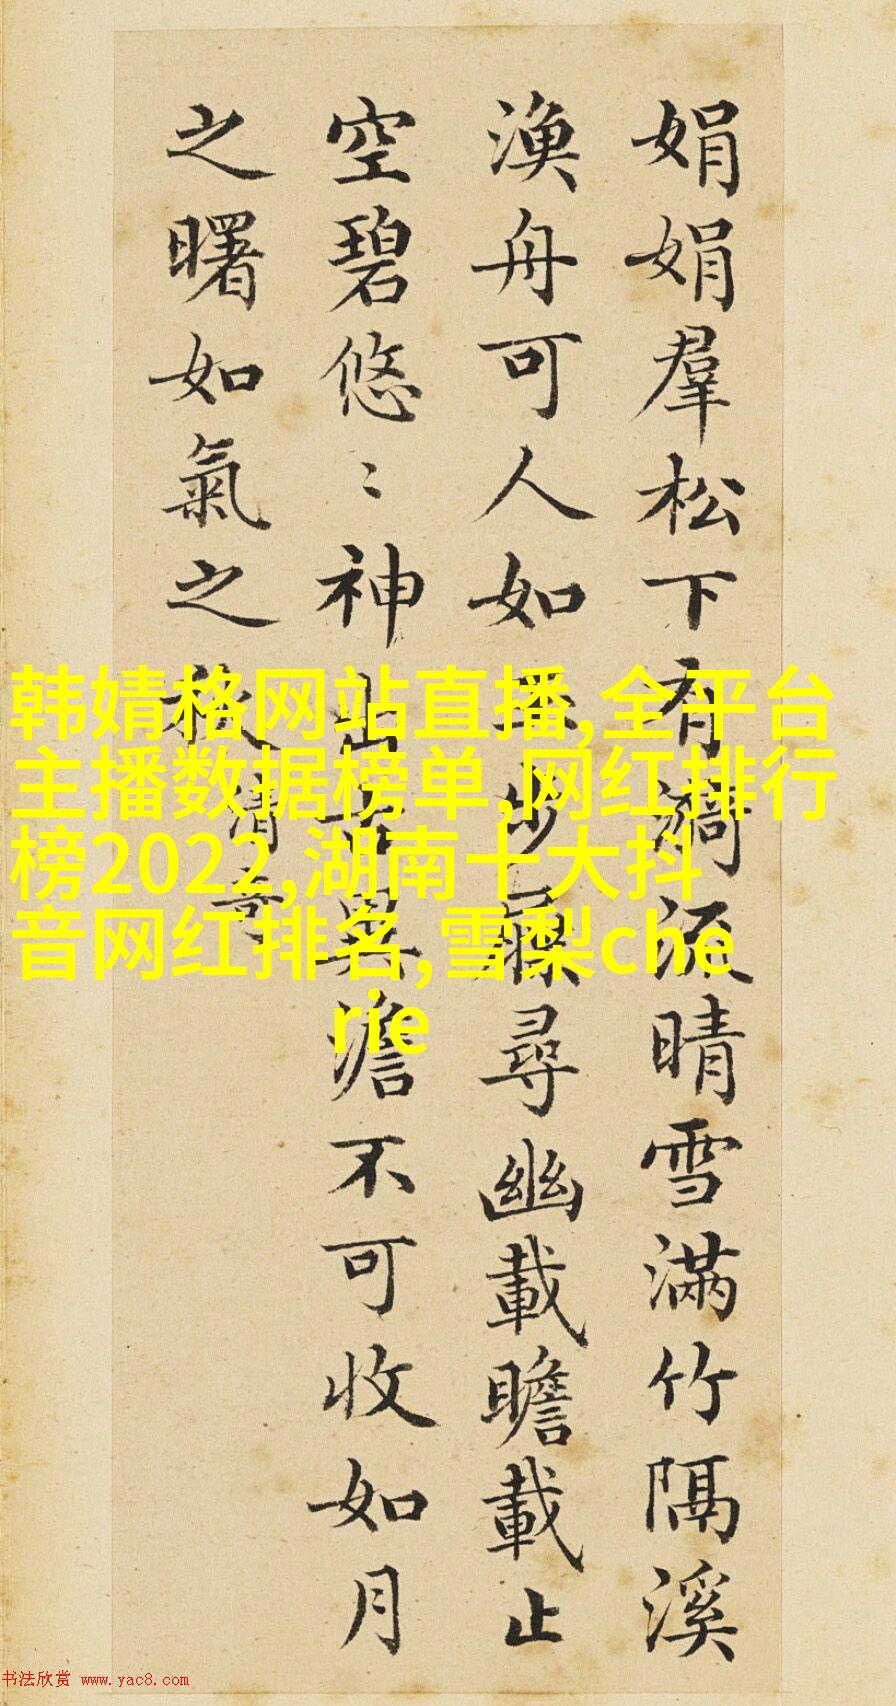 娟娟羣松下有漪流晴雪滿竹隔溪
漁舟可人如玉步屧尋幽載瞻載止
空碧悠〻神出古異澹不可收如月
之曙如氣之秋清奇
韩婧格网站直播,全平台
主播数据榜单,网红排行
榜2022,湖南十大抖
音网红排名,雪梨che
rie
书法欣赏 www.yac8.com